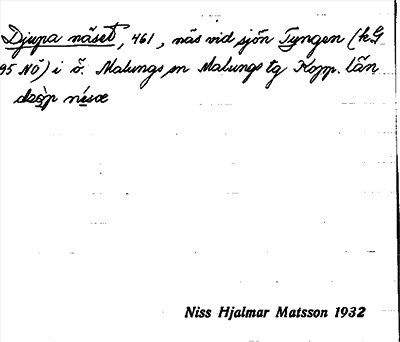 Djupa näset, 461, näs vid sjön Tyngen (kG
95 NÖ) i ö. Malungs sn Malungs tg Kopp. län
Niss Hjalmar Matsson 1932